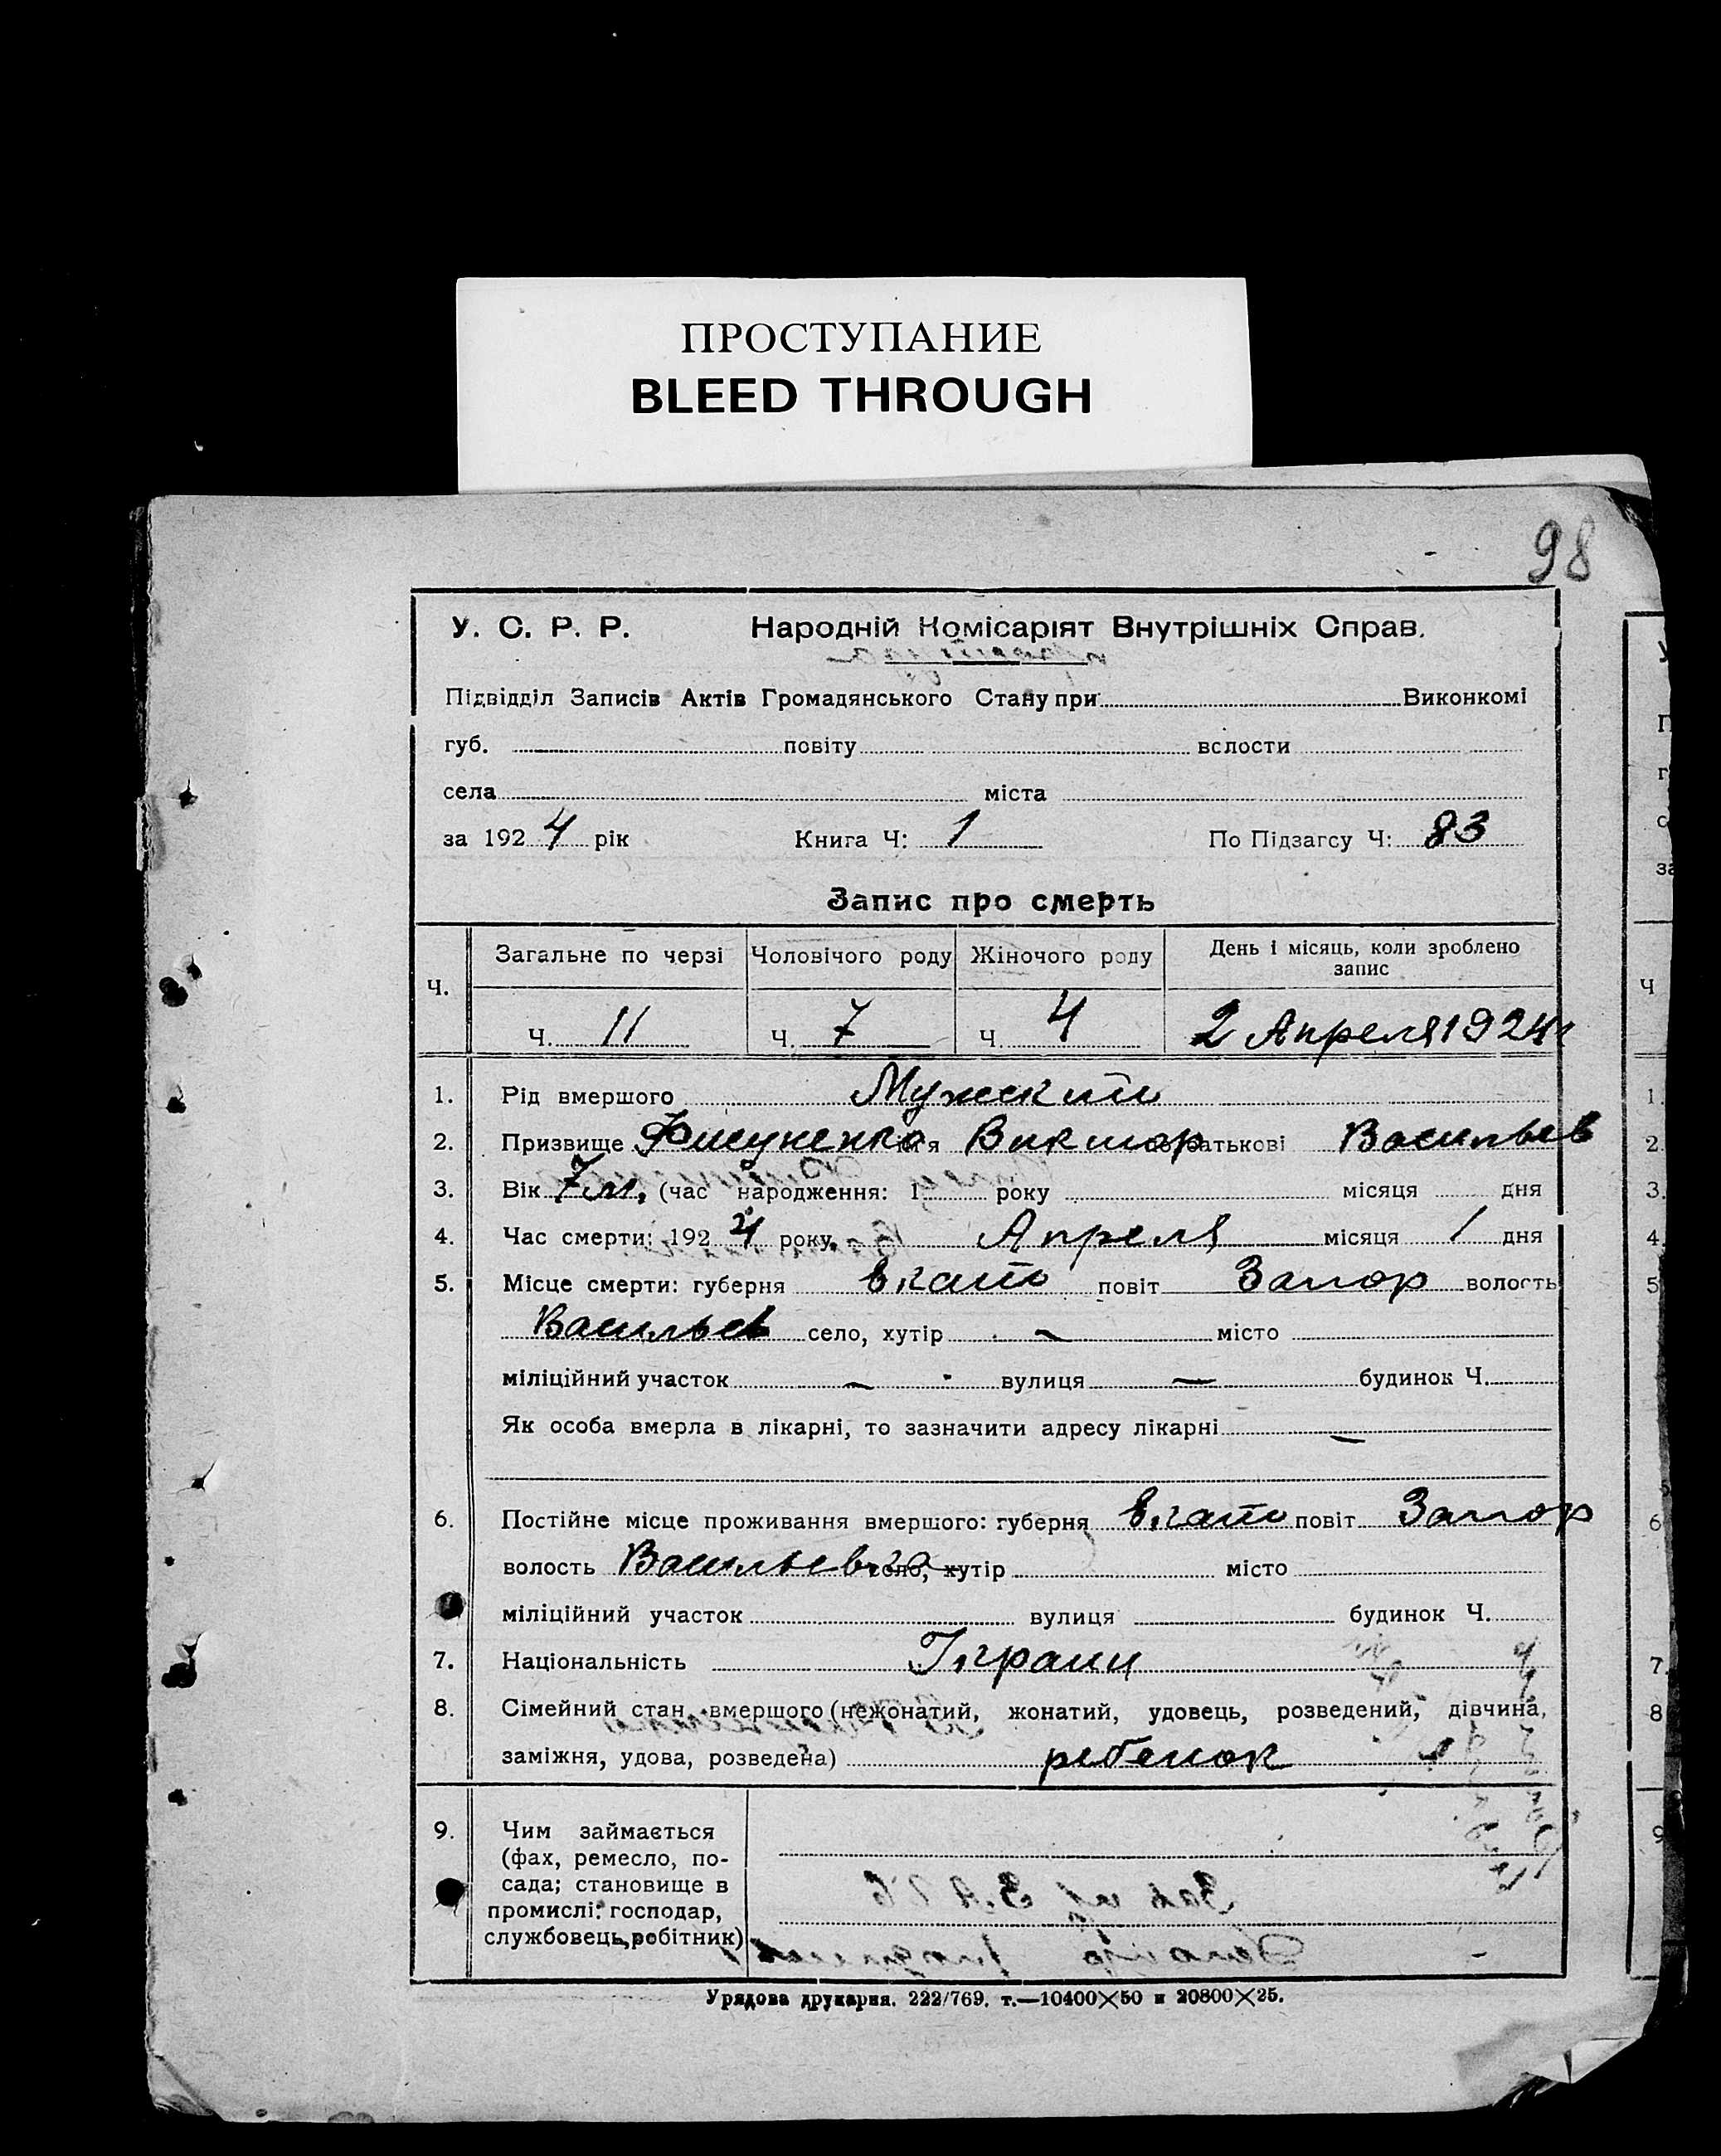 ПРОСТУПАНИЕ
BLEED THROUGH
98
У. С. Р. Р. Народній Комісаріят Внутрішніх Справ.
Підвідділ Записів Актів Громадянського Стану при Виконкомі
губ. повіту волости
села міста
за 1924 рік Книга Ч: 1 По Підзагсу Ч: 83
Запис про смерть
Ч. Загальне по черзі Чоловічого роду Жіночого роду День і місяць, коли зроблено запис
Ч. 11 Ч. 7 Ч. 4 2 Апреля 1924 г
1. Рід вмершого Мужский
2. Призвище імʼя Виктор по батькові Васильев
3. Вік 7 м. (час народження: 1 року місяця дня
4. Час смерти: 1924 року, Апреля місяця 1 дня
5. Місце смерти: губерня Екат повіт Запор волость
Васильев село, хутір — місто
міліційний участок — вулиця — будинок Ч.
Як особа вмерла в лікарні, то зазначити адресу лікарні —
6. Постійне місце проживання вмершого: губерня Екат повіт Запор
волость Васильев село, хутір місто
міліційний участок вулиця будинок Ч.
7. Національність
8. Сімейний стан вмершого (нежонатий, жонатий, удовець, розведений, дівчина,
заміжня, удова, розведена) ребенок
9. Чим займається
(фах, ремесло, по-
сада; становище в
промислі: господар,
службовець, робітник)
Урядова друкарня. 222/769. т.—10400×50 и 20800×25.